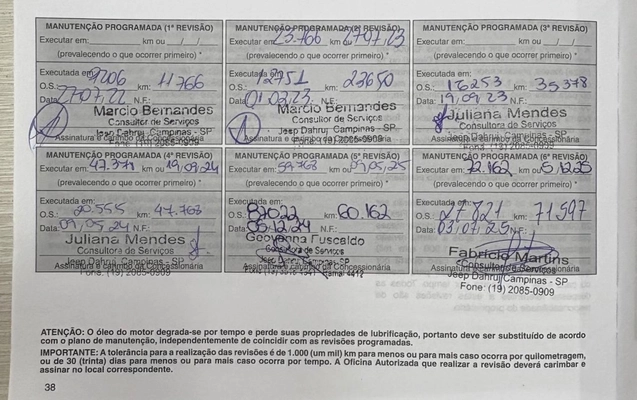 MANUTENÇÃO PROGRAMADA (1ª REVISÃO)
Executar em: km ou / /
(prevalecendo o que ocorrer primeiro) *
Executada em:
O.S. km: 11766
Data: 27/07/22 N.F.:
Marcio Bernandes
Consultor de Serviços
Jeep Dahruj Campinas - SP
Assinatura e carimbo da Concessionária
Fone: (19) 2085-0909
MANUTENÇÃO PROGRAMADA (2ª REVISÃO)
Executar em: 23.766 km ou
(prevalecendo o que ocorrer primeiro) *
Executada em:
O.S. 12751 km: 23650
Data: 01/02/23 N.F.:
Marcio Bernandes
Consultor de Serviços
Jeep Dahruj Campinas - SP
Assinatura e carimbo da Concessionária
Fone: (19) 2085-0909
MANUTENÇÃO PROGRAMADA (3ª REVISÃO)
Executar em: km ou / /
(prevalecendo o que ocorrer primeiro) *
Executada em:
O.S.: 16253 km: 35378
Data: 19/09/23 N.F.:
Juliana Mendes
Consultora de Serviços
Jeep Dahruj Campinas - SP
Assinatura e carimbo da Concessionária
Fone: (19) 2085-0909
MANUTENÇÃO PROGRAMADA (4ª REVISÃO)
Executar em: 47.371 km ou 19/09/24
(prevalecendo o que ocorrer primeiro) *
Executada em:
O.S.: 20.555 km: 47.763
Data: 09/05/24 N.F.:
Juliana Mendes
Consultora de Serviços
Jeep Dahruj Campinas - SP
Assinatura e carimbo da Concessionária
Fone: (19) 2085-0909
MANUTENÇÃO PROGRAMADA (5ª REVISÃO)
Executar em: 59.768 km ou 09/05/25
(prevalecendo o que ocorrer primeiro) *
Executada em:
O.S.: km: 60.162
Data: 05/12/24 N.F.:
Geovanna Fuscaldo
Consultora de Serviços
Jeep Dahruj Campinas - SP
Assinatura e carimbo da Concessionária
Ramal 4412
MANUTENÇÃO PROGRAMADA (6ª REVISÃO)
Executar em: 72.162 km ou
(prevalecendo o que ocorrer primeiro) *
Executada em:
O.S.: 27821 km: 71597
Data: 03/07/25 N.F.:
Fabricio Martins
Consultor de Serviços
Assinatura e carimbo da Concessionária
Jeep Dahruj Campinas - SP
Fone: (19) 2085-0909
ATENÇÃO: O óleo do motor degrada-se por tempo e perde suas propriedades de lubrificação, portanto deve ser substituído de acordo
com o plano de manutenção, independentemente de coincidir com as revisões programadas.
IMPORTANTE: A tolerância para a realização das revisões é de 1.000 (um mil) km para menos ou para mais caso ocorra por quilometragem,
ou de 30 (trinta) dias para menos ou para mais caso ocorra por tempo. A Oficina Autorizada que realizar a revisão deverá carimbar e
assinar no local correspondente.
38